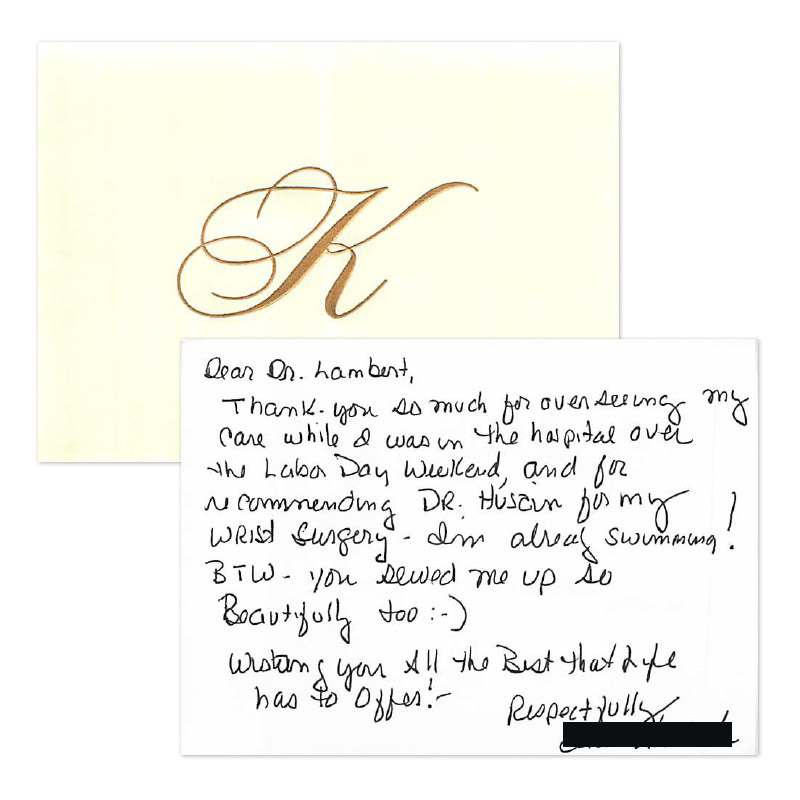 K
Dear Dr. Lambert,
Thank-you so much for overseeing my
care while I was in the hospital over
the Labor Day Weekend, and for
recommending DR. Husain for my
WRIST Surgery - I'm already swimming!
BTW - you sewed me up so
Beautifully too :-)
Wishing you All the Best that Life
has to Offer! -
Respectfully